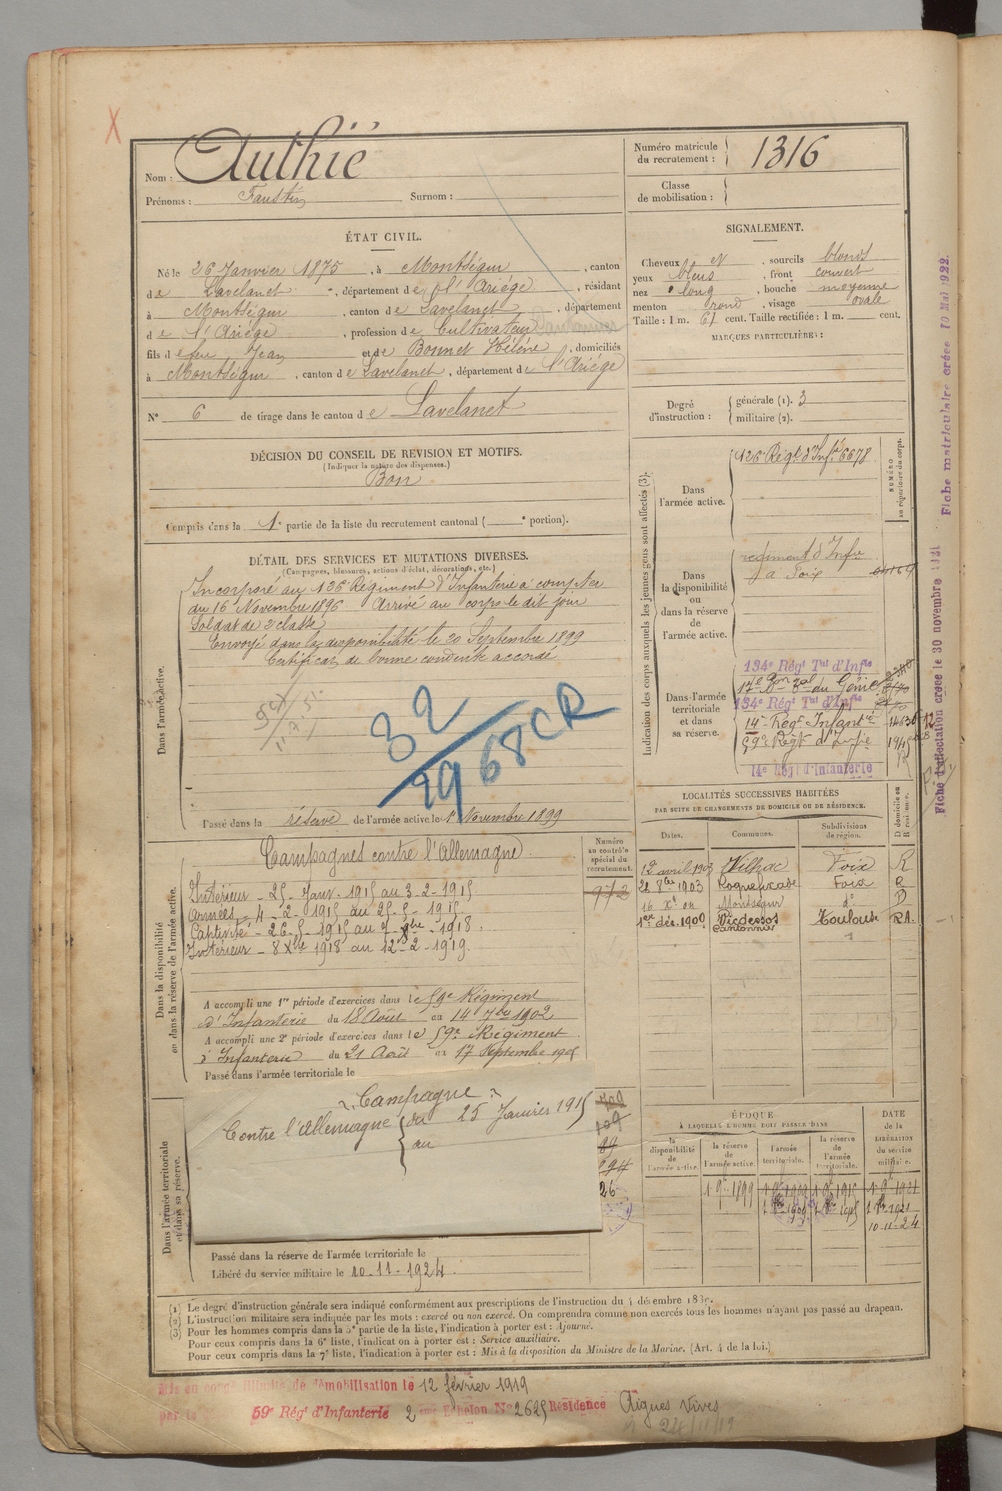 X
Nom : Authié
Prénoms : Faustin Surnom :
Numéro matricule du recrutement : 1316
Classe de mobilisation :
ÉTAT CIVIL.
Né le 26 Janvier 1875, à Montségur, canton
de Lavelanet, département de l'Ariége, résidant
à Montségur, canton de Lavelanet, département
de l'Ariége, profession de Cultivateur Cantonnier
fils de feu Jean et de Bonnet Hélène, domiciliés
à Montségur, canton de Lavelanet, département de l'Ariége
N° 6 de tirage dans le canton de Lavelanet
SIGNALEMENT.
Cheveux et, sourcils blonds
yeux bleus, front couvert
nez long, bouche moyenne
menton rond, visage ovale
Taille : 1 m. 61 cent. Taille rectifiée : 1 m. cent.
MARQUES PARTICULIÈRES :
Degré d'instruction : générale (1). 3
militaire (2).
DÉCISION DU CONSEIL DE REVISION ET MOTIFS.
(Indiquer la nature des dispenses.)
Bon
Compris dans la 1e partie de la liste du recrutement cantonal ( e portion).
DÉTAIL DES SERVICES ET MUTATIONS DIVERSES.
(Campagnes, blessures, actions d'éclat, décorations, etc.)
Dans l'armée active.
Incorporé au 126e Régiment d'Infanterie à compter
du 16 Novembre 1896 Arrivé au corps le dit jour
Soldat de 2e classe
Envoyé dans la disponibilité le 20 Septembre 1899
Certificat de bonne conduite accordé
32
2968 CR
Passé dans la réserve de l'armée active le 1 Novembre 1899
Indication des corps auxquels les jeunes gens sont affectés (3).
NUMÉRO au répertoire du corps.
Dans l'armée active.
126e Régt d'Infie 6678
Dans la disponibilité ou dans la réserve de l'armée active.
régiment d'Infie
à Foix
Dans l'armée territoriale et dans sa réserve.
134e Régt Tal d'Infie
134e Régt Tal d'Infie
14e Régt Infanterie
59e Régt d'Infie
14e Régt d'Infanterie
LOCALITÉS SUCCESSIVES HABITÉES
PAR SUITE DE CHANGEMENTS DE DOMICILE OU DE RÉSIDENCE.
Dates. Communes. Subdivisions de région. D domicile ou R résidence.
12 avril 1903 Foix R
21 8bre 1903 Roquefixade Foix R
Montségur do D
1er déc. 1909 Vicdessos Toulouse RA.
Cantonnier
Dans la disponibilité ou dans la réserve de l'armée active.
Campagnes contre l'Allemagne
Numéro au contrôle spécial du recrutement.
Intérieur - 25 - Janv - 1915 au 3-2-1915
Armées - 4-2-1915 au 25-5-1915
Captivité - 26-5-1915 au 7-Xbre-1918.
Intérieur - 8 Xbre 1918 au 12-2-1919.
A accompli une 1re période d'exercices dans le 59e Régiment
d'Infanterie du 18 Août au 14 7bre 1902
A accompli une 2e période d'exercices dans le 59e Régiment
d'Infanterie du 21 Août au 17 Septembre 1905
Passé dans l'armée territoriale le
Dans l'armée territoriale et dans sa réserve.
"Campagne"
Contre l'Allemagne du 25 Janvier 1915
au
26
Passé dans la réserve de l'armée territoriale le
Libéré du service militaire le 10-11-1924.
ÉPOQUE
À LAQUELLE L'HOMME DOIT PASSER DANS
la disponibilité de l'armée active. la réserve de l'armée active. l'armée territoriale. la réserve de l'armée territoriale. DATE de la LIBÉRATION du service militaire.
10-11-24
(1) Le degré d'instruction générale sera indiqué conformément aux prescriptions de l'instruction du 4 décembre 1889.
(2) L'instruction militaire sera indiquée par les mots : exercé ou non exercé. On comprendra comme non exercés tous les hommes n'ayant pas passé au drapeau.
(3) Pour les hommes compris dans la 5e partie de la liste, l'indication à porter est : Ajourné.
Pour ceux compris dans la 6e liste, l'indication à porter est : Service auxiliaire.
Pour ceux compris dans la 7e liste, l'indication à porter est : Mis à la disposition du Ministre de la Marine. (Art. 4 de la loi.)
Mis en congé illimité de démobilisation le 12 février 1919
par le 59e Régt d'Infanterie 2eme Echelon N° 2625 Résidence Aigues Vives
Fiche matriculaire créée 10 Mai 1922.
Fiche d'affectation créée le 30 novembre 1931